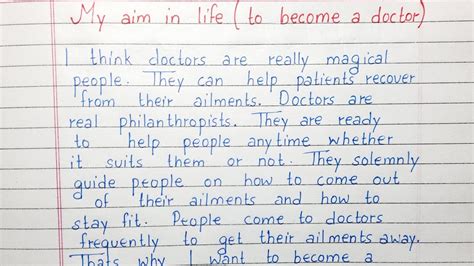 My aim in life (to become a doctor)
I think doctors are really magical
people. They can help patients recover
from their ailments. Doctors are
real philanthropists. They are ready
to help people anytime whether
it suits them or not. They solemnly
guide people on how to come out
of their ailments and how to
stay fit. People come to doctors
frequently to get their ailments away.
Thats why I want to become a